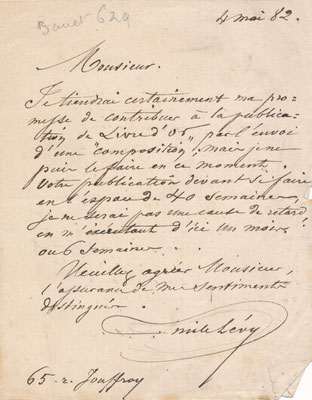 Bovet 629
4 mai 82.
Monsieur.
Je tiendrai certainement ma pro-
messe de contribuer à la publica-
tion de Livre d'Or„ par l'envoi
d'une "composition", mais je ne
puis le faire en ce moment.
Votre publication devant se faire
en l'espace de 40 semaines,
je ne serai pas une cause de retard,
en m'exécutant d'ici un mois
ou 6 semaines.
Veuillez agréer Monsieur,
l'assurance de mes sentiments
distingués.
Emile Lévy
65. r. Jouffroy